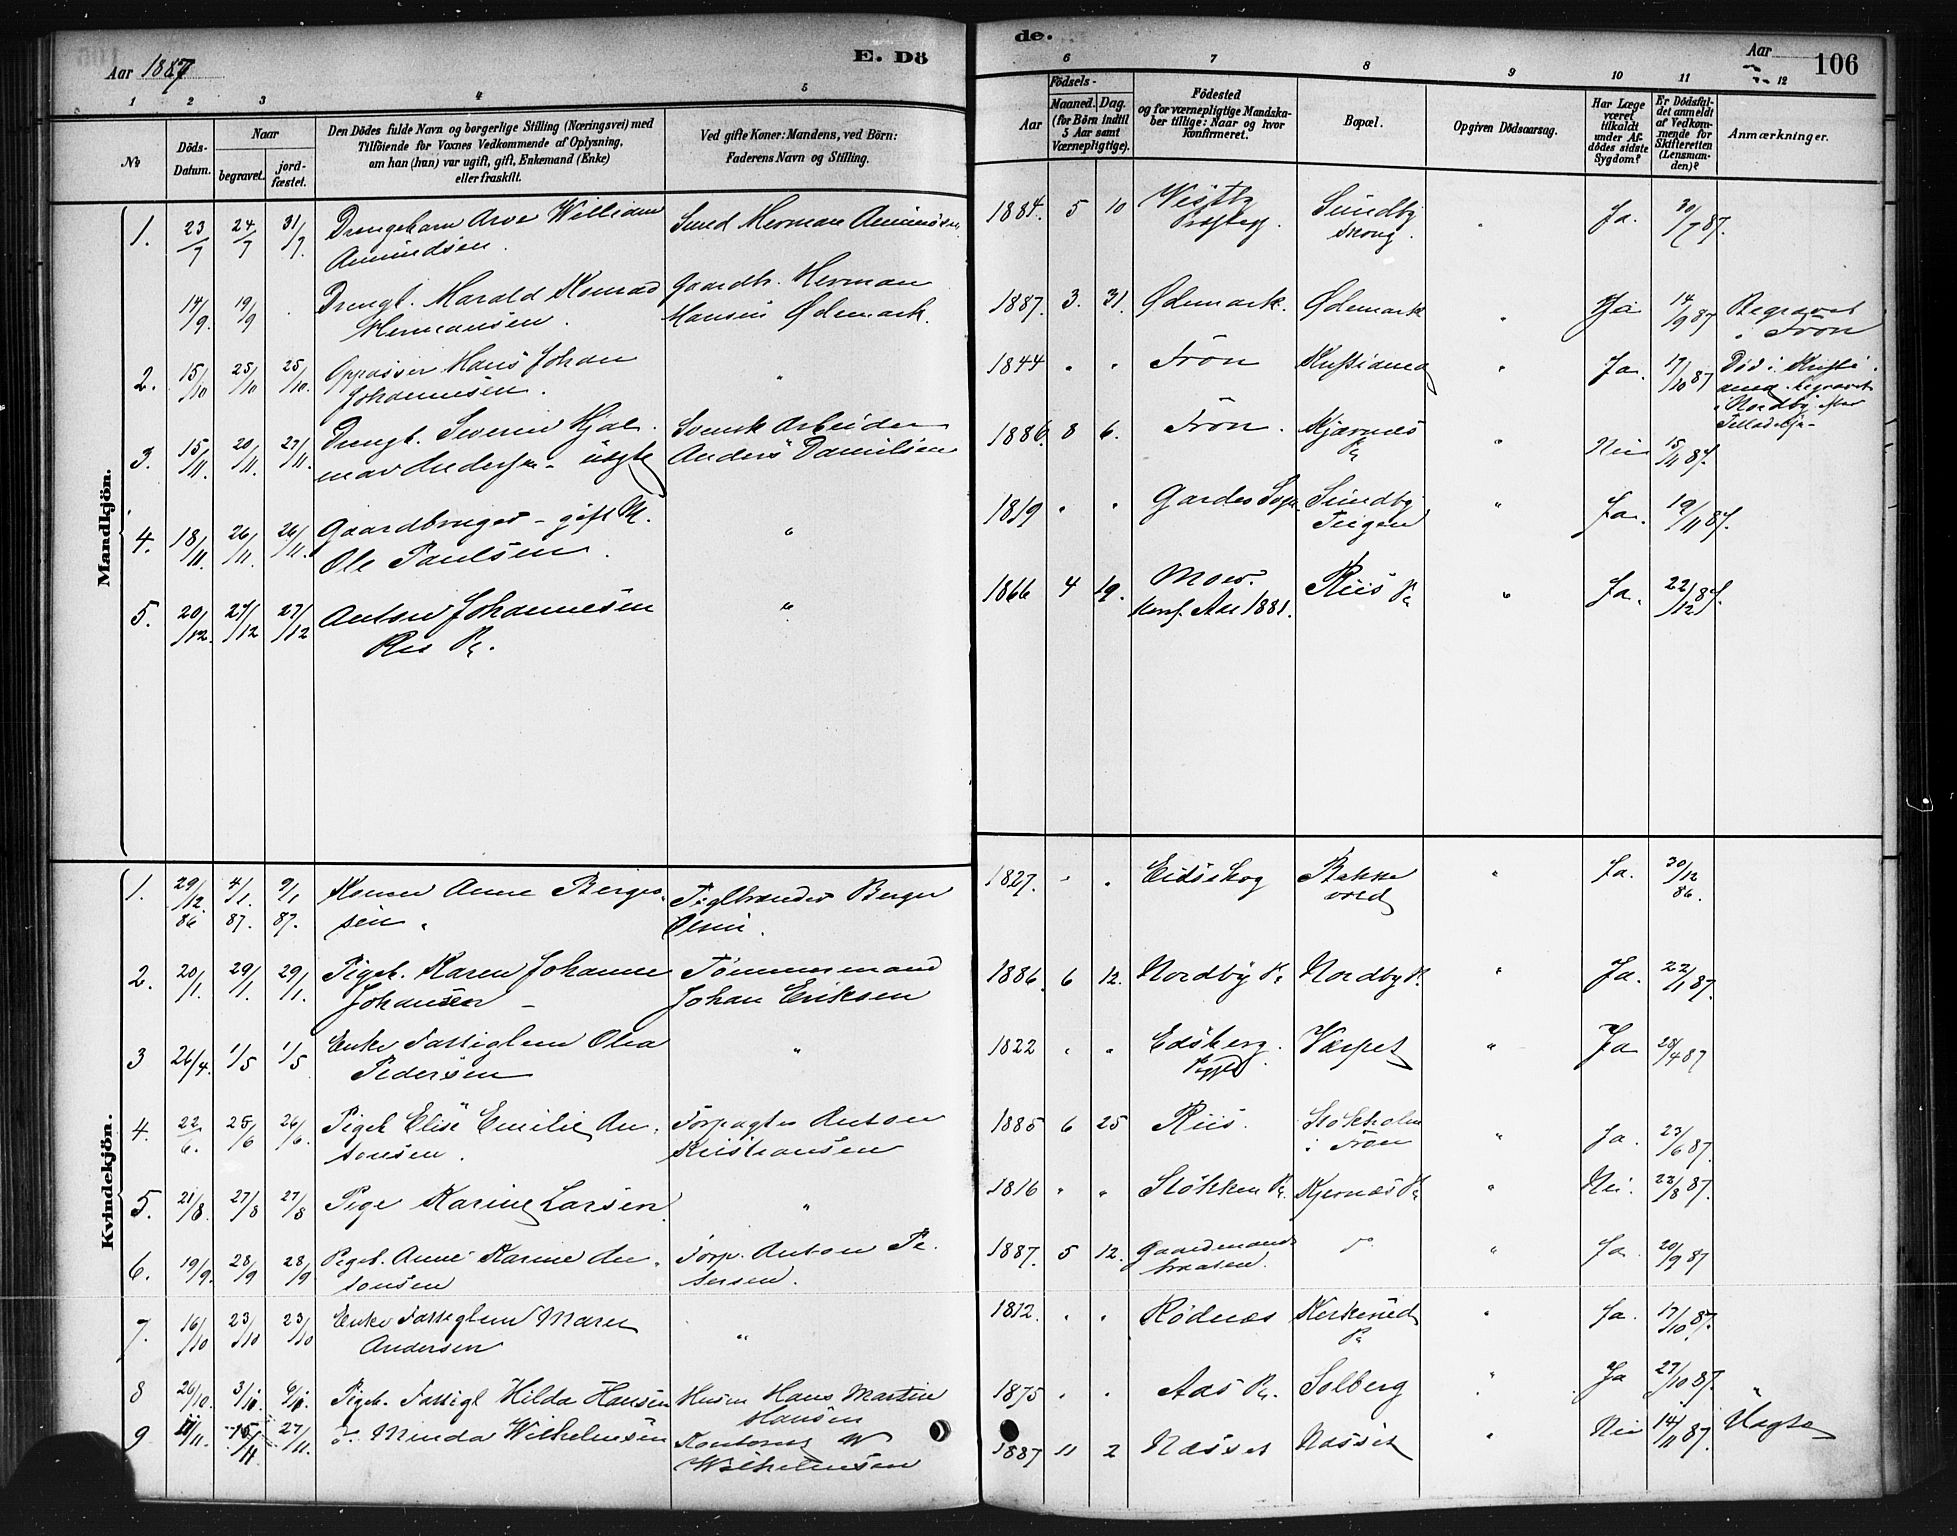 Aar 1887
E. Dö
de.
Aar
106
1 2 3 4 5 6 7 8 9 10 11 12
No
Döds-
Datum.
Naar
begravet.
jord-
fæstet.
Den Dödes fulde Navn og borgerlige Stilling (Næringsvei) med
Tilföiende for Voxnes Vedkommende af Oplysning,
om han (hun) var ugift, gift, Enkemand (Enke)
eller fraskilt.
Ved gifte Koner: Mandens, ved Börn:
Faderens Navn og Stilling.
Födsels-
Aar
Maaned.
Dag.
(for Börn indtil
5 Aar samt
Værnepligtige).
Födested
og for værnepligtige Mandska-
ber tillige: Naar og hvor
konfirmeret.
Bopæl.
Opgiven Dödsaarsag.
Har Læge
været
tilkaldt
under Af-
dödes sidste
Sygdom?
Er Dödsfal-
det anmeldt
af Vedkom-
mende for
Skifteretten
(Lensman-
den)?
Anmærkninger.
Mandkjön.
1. 23/7 24/7 31/7. Drengebarn Arve William Smed Herman Amundsen 1884. 5 10 Vestby Sundby Ja. 30/7 87.
Amundsen. Præstegj. skoug.
14/9. 19/9 Drengb. Harald Konrad Gaardbr. Herman 1887. 3. 31. Ødemark. Ødemark " Ja 14/9 87 Begravet
Hermansen. Hansen Ødemark. i Frøn
2. 15/10 25/10 25/10. Oppasser Hans Johan " 1844 " " Frøn Kristiania " Ja. 17/10 87 Død i Kristi-
Johannesen. ania, begravet
i Nordby efter
Tilladelse
3. 15/11. 20/11. 27/11. Drengb. Severin Hjal- Svensk Arbeider 1886. 8 6. Frøn. Kjærnes " Nei 15/11 87.
mar Andersen - uægte Anders Danielsen Pl.
4. 18/11. 26/11. 26/11. Gaardbruger - gift M. " 1819 " " Gardes Sogn Sundby " Ja. 19/11 87.
Ole Paulsen. Teigen
5. 20/12. 27/12 27/12 Anton Johannesen " 1866 4 19. Moss. Riis Pl. " Ja. 22/12 87.
Ris Pl. Konf. Aar 1881.
Kvindekjön.
1. 29/12. 86 4/1. 87. 9/1 87. Konen Anne Berger- Teglbrænder Berger 1827. " " Eidsskog Bakke " Ja. 30/12 86.
sen. Olsen.
2. 20/1. 29/1. 29/1. Pigeb. Karen Johanne Tømmermand 1886. 6 12. Nordby Pl. Nordby Pl. " Ja. 22/1 87.
Johansen - Johan Eriksen
3 26/4. 1/5 1/5 Enke Fattiglem Olea " 1822 " " Edsberg. Varpet " Ja 28/4 87
Pedersen
4. 22/6. 25/6 26/6. Pigeb. Elise Emilie An- Forpagter Anton 1885 6 25 Riis. Stokholm " Ja. 23/6 87.
tonsen. Kristiansen i Frøn
5. 21/8. 27/8 27/8 Pige Karine Larsen " 1816 " " Støkken Pl. Kjernæs Pl. " Nei. 22/8 87.
6. 19/9. 28/9 28/9 Pigeb. Anne Karine An- Forp. Anton Pe- 1887. 5 12. Gaardmands do " Ja. 20/9 87
tonsen tersen. braaten.
7. 16/10 23/10 23/10 Enke Fattiglem Maren " 1812. " " Rødnæs Kirkerud " Ja. 17/10. 87.
Andersen Pl.
8 26/10. Pigeb. Fattigl. Hilda Hansen Husm Hans Martin 1875 " " Aas Pl. Solberg " Ja 27/10 87.
Hansen
9 11/11. 15/11 27/11. do Minda Wilhelmsen Kontorist W 1887 11 2 Næsset Næsset " Nei 14/11 87. Uægte
Wilhelmsen